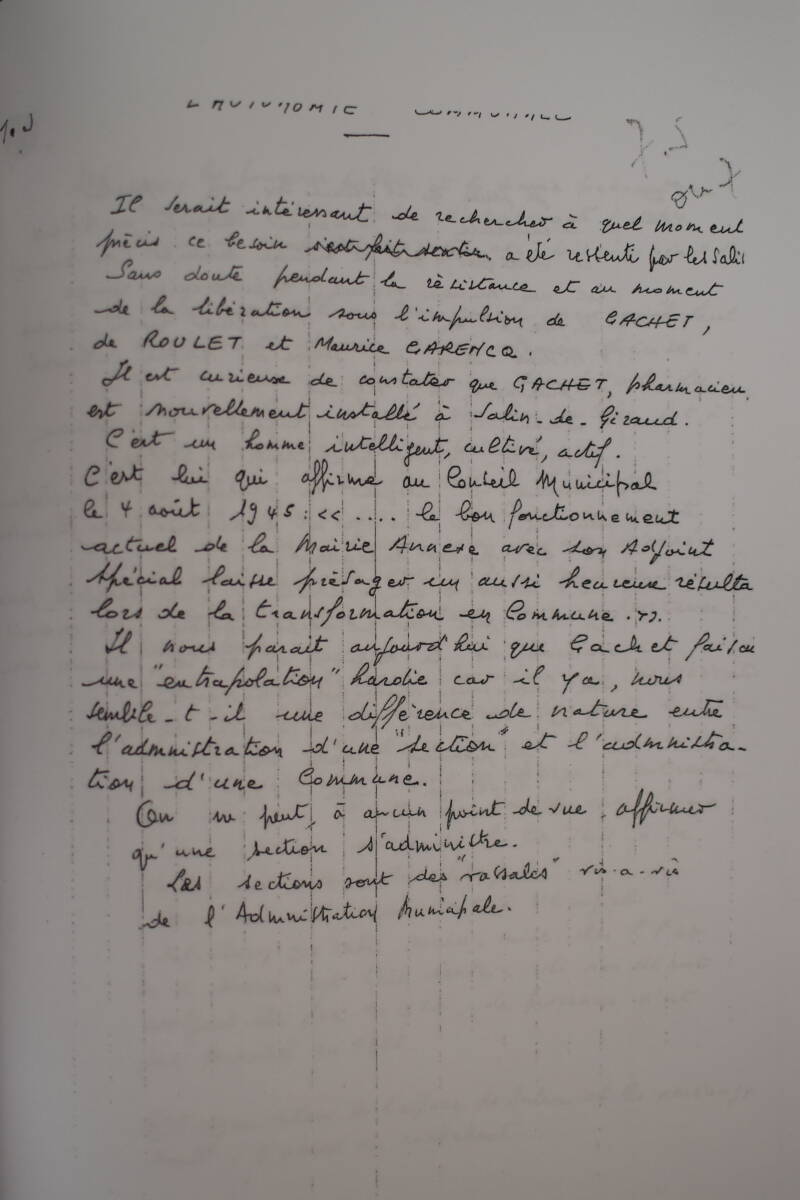 L'AUTONOMIE COMMUNALE
Il serait intéressant de rechercher à quel moment
précis ce besoin a été ressenti par les Sali
Sans doute pendant la résistance et au moment
de la libération sous l'impulsion de GACHET,
de ROULET et Maurice GARENCQ.
Il est curieuse de constater que GACHET, pharmacien,
est nouvellement installé à Salin-de-Giraud.
C'est un homme intelligent, cultivé, actif.
C'est lui qui affirme au Conseil Municipal
le 4 août 1945 : << .... le bon fonctionnement
actuel de la Mairie Annexe avec son Adjoint
Spécial laisse présager un aussi heureux résulta
lors de la transformation en Commune. >>.
Il nous parait aujourd'hui que Gachet faisai
une "extrapolation" hardie car il y a, nous
semble-t-il une différence de nature entre
l'admnistration d'une "section" et l'admnistra-
tion d'une Commune.
On ne peut, à aucun point de vue, affirmer
qu'une section s'administre.
Les sections sont des "vassales" vis-a-vis
de l'Admnistration Municipale.